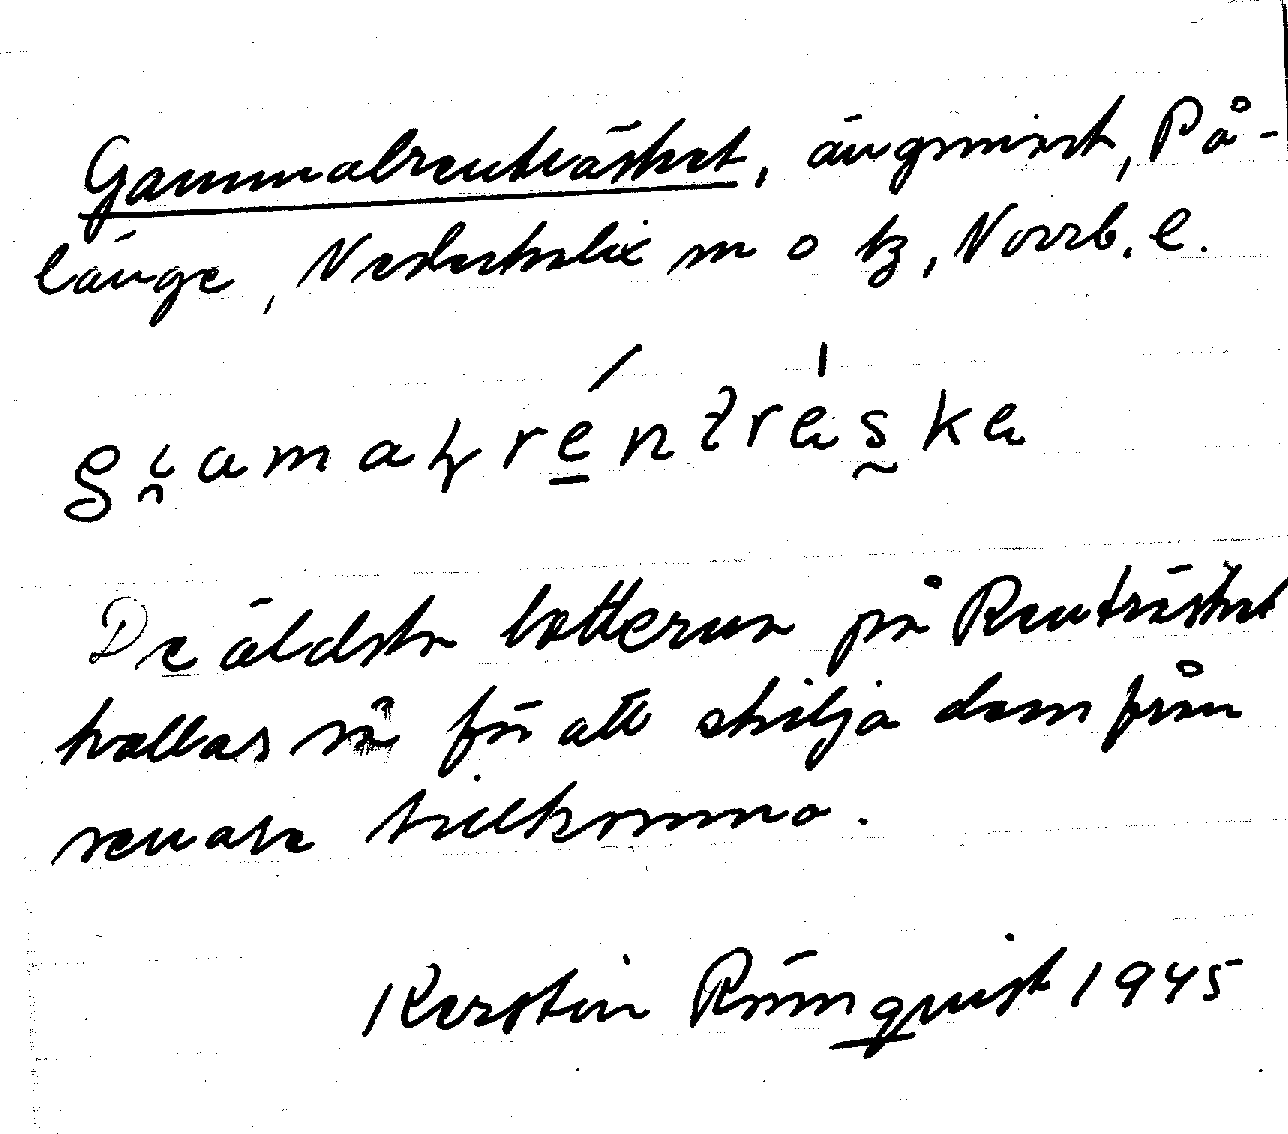 Gammalrenträsket, ängsmark, På-
länge, Nederkalix sn o tg, Norrb. l.
De äldsta lotterna på Renträsket
kallas så för att skilja dem från
senare tillkomna.
Kerstin Rönnquist 1945